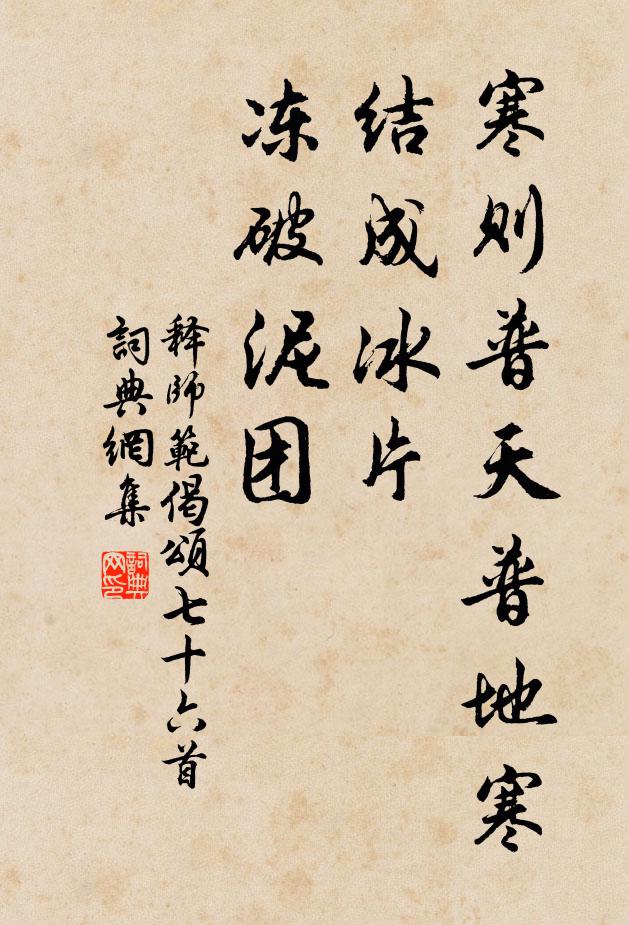 寒则普天普地寒
结成冰片
冻破泥团
释师範偈颂七十六首
詞典網集
詞典网印